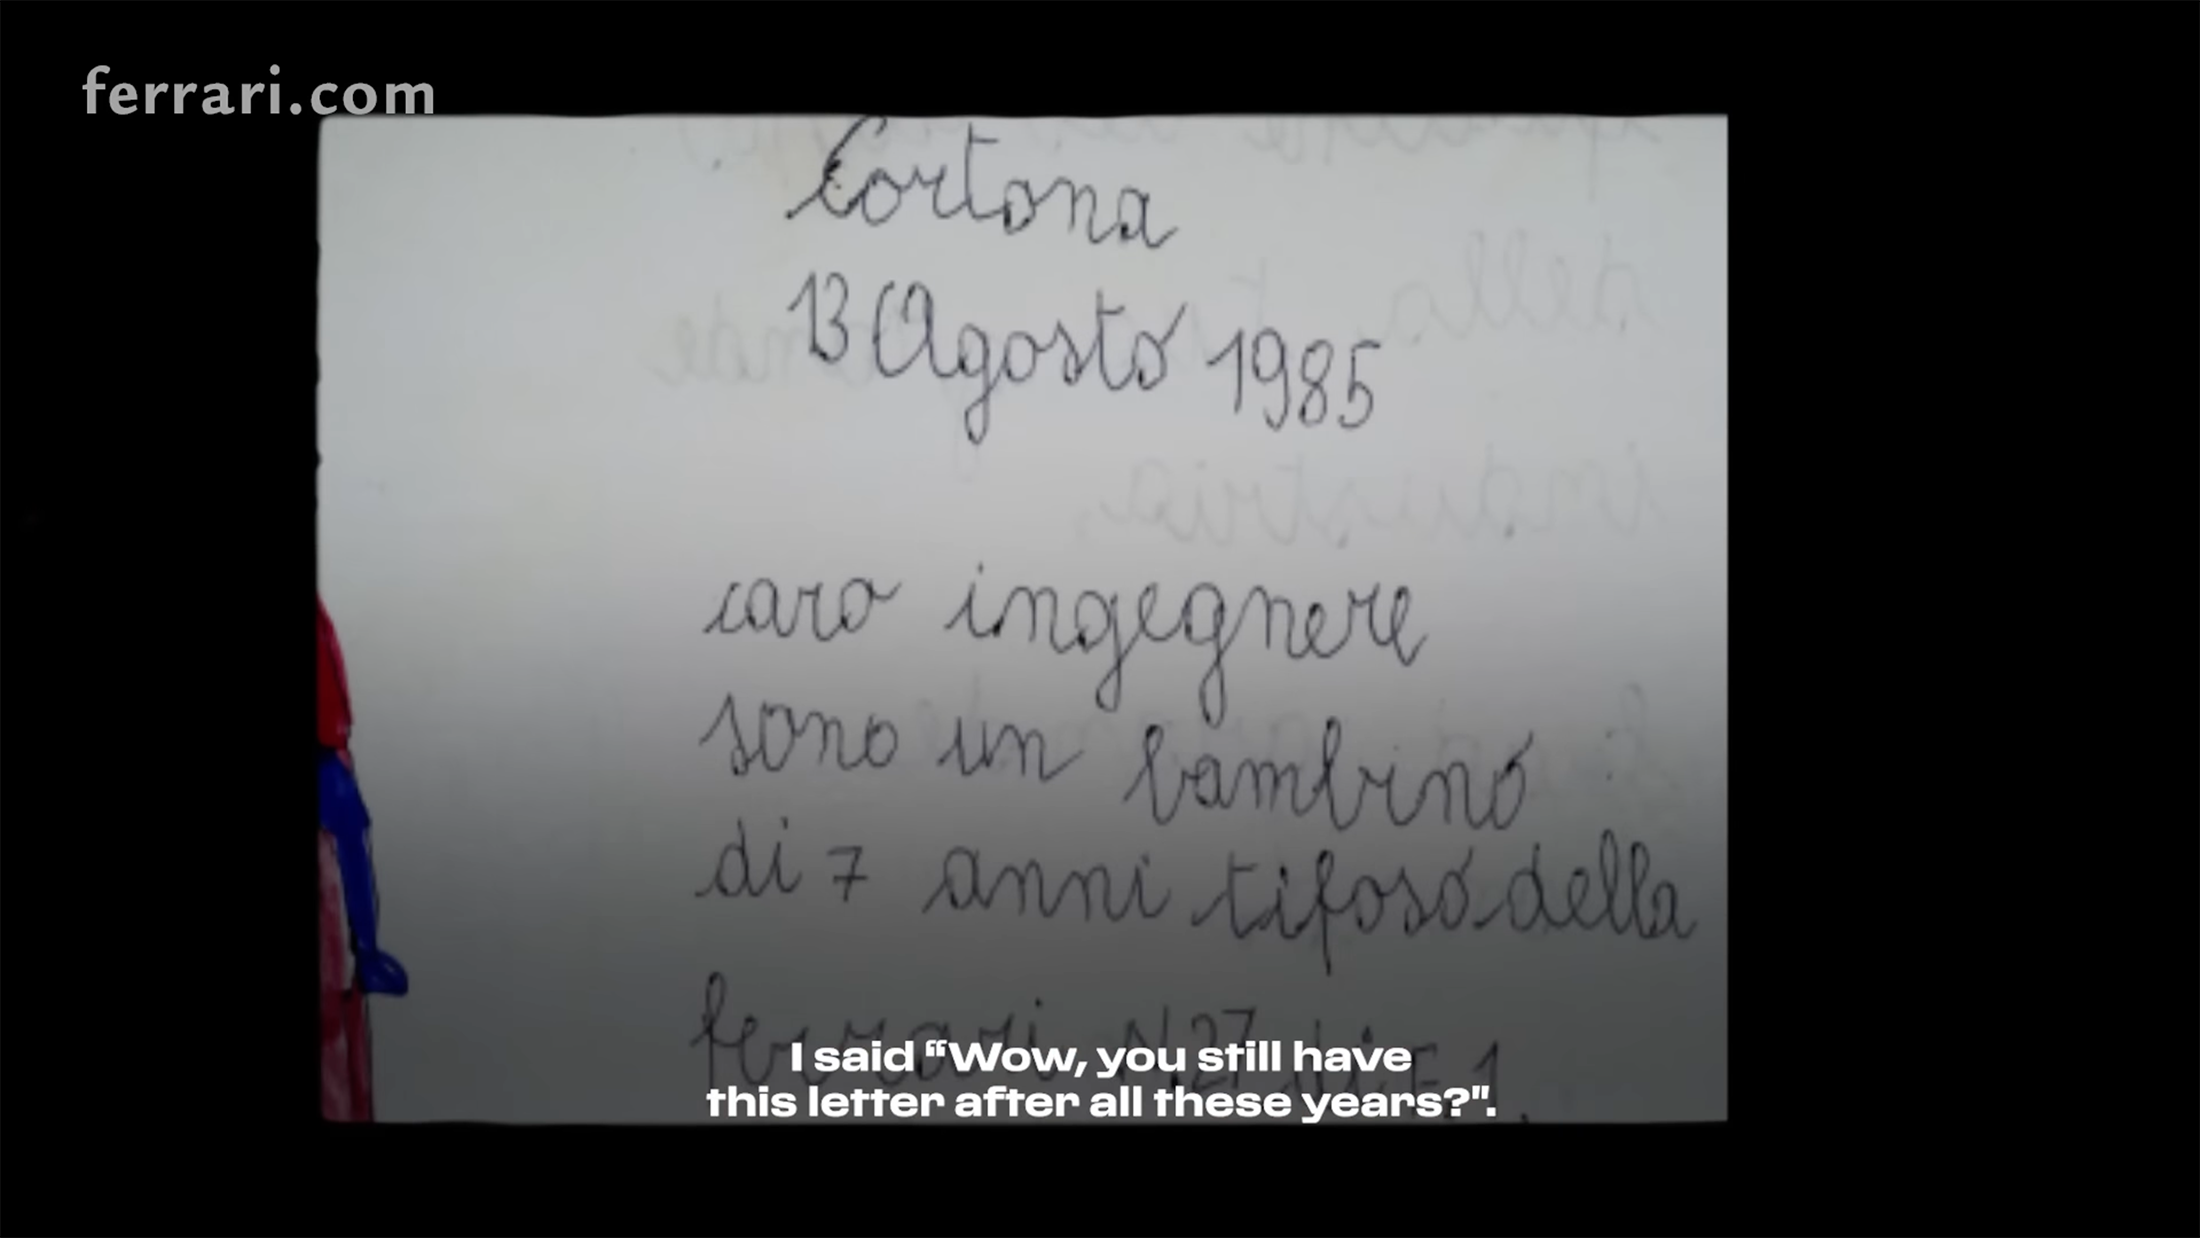 ferrari.com
Cortona
13 Agosto 1985
caro ingegnere
sono un bambino
di 7 anni tifoso della
ferrari N.27 di F.1.
I said “Wow, you still have
this letter after all these years?".
industria,
della